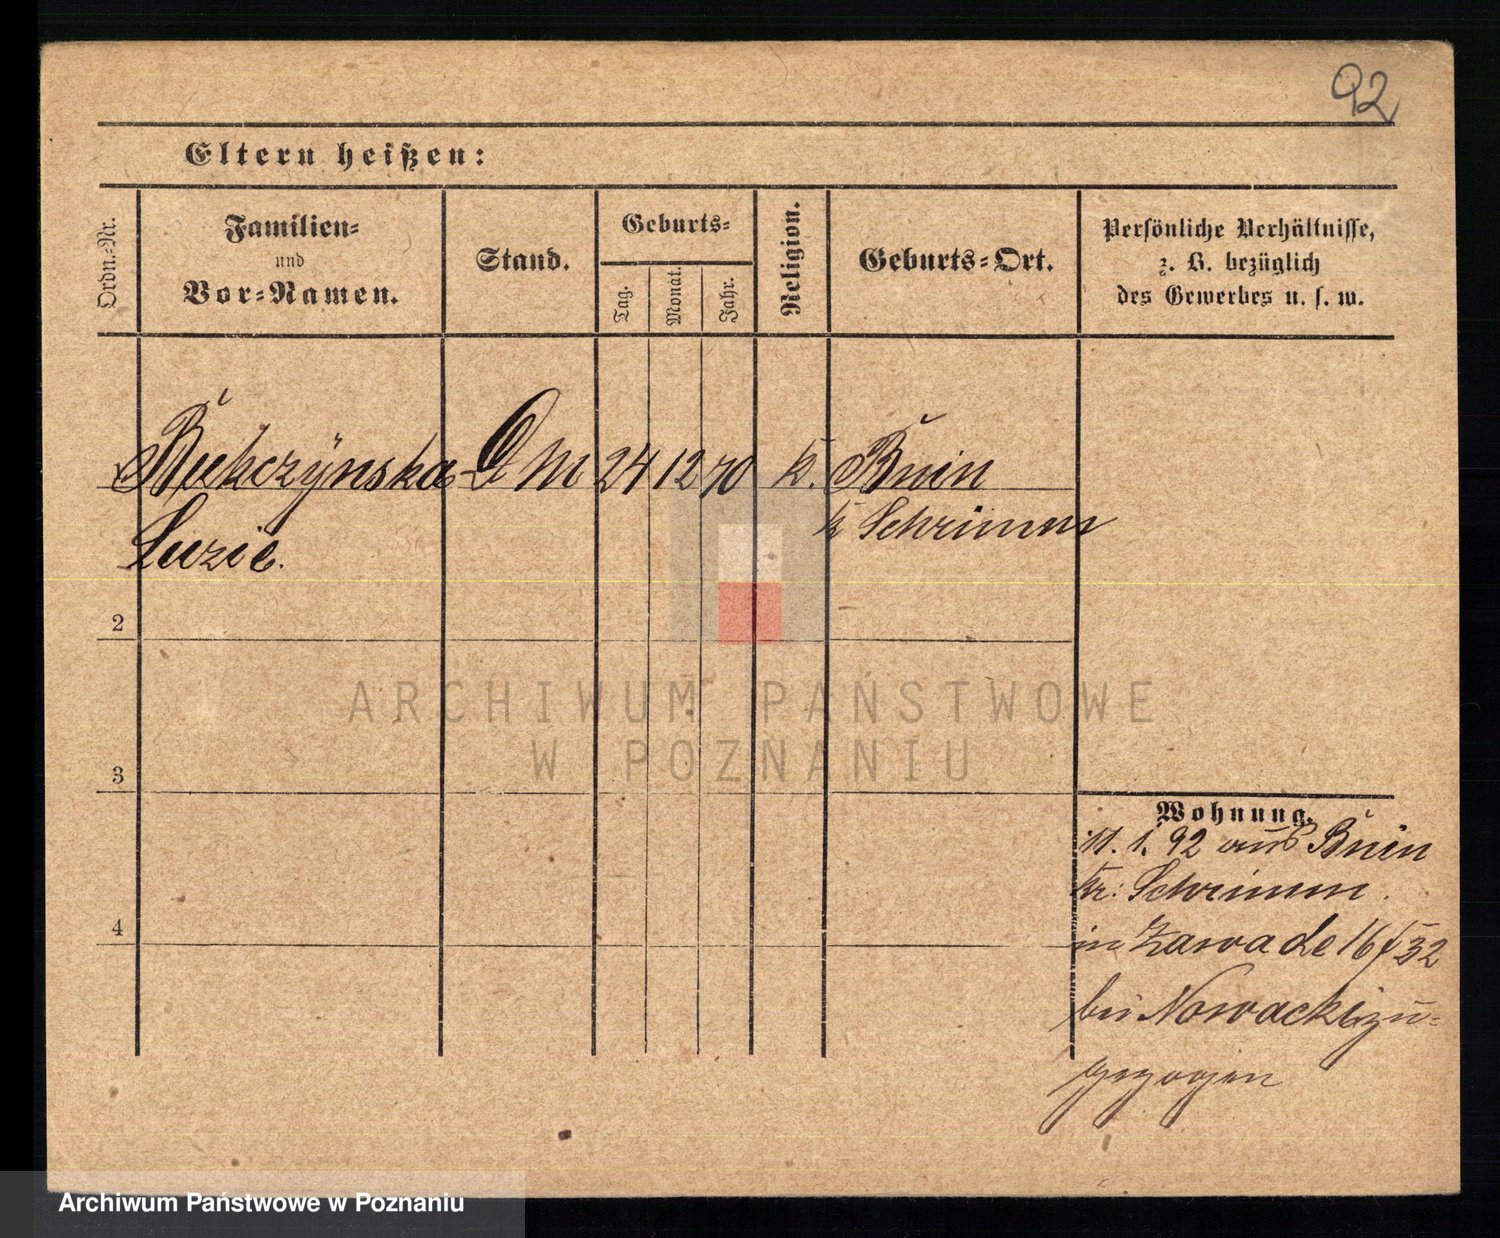 92
Eltern heißen:
Ordn.-Nr.
Familien-
und
Vor-Namen.
Stand.
Geburts-
Tag.
Monat.
Jahr.
Religion.
Geburts-Ort.
Persönliche Verhältnisse,
z. B. bezüglich
des Gewerbes u. s. w.
M 24 12 70 k. Bnin
k Schrimm
Luzie.
2
3
4
Wohnung.
11. 1. 92 aus Bnin
Kr: Schrimm.
in Zawade 16/32
bei Nowacki zu-
gezogen
ARCHIWUM PAŃSTWOWE
W POZNANIU
Archiwum Państwowe w Poznaniu